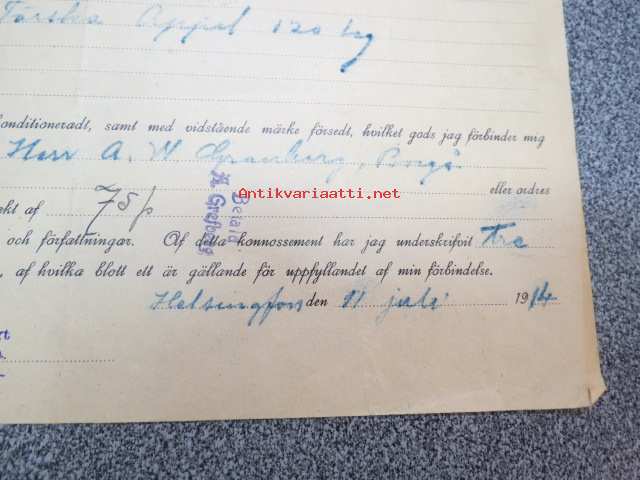 Färska Äppel 120 kg
konditioneradt, samt med vidstående märke försedt, hvilket gods jag förbinder mig
Herr A. W. Granberg, Borgå
Antikvariaatti.net
eller ordres
ekt af 75 p
Betald
och författningar. Af detta konnossement har jag underskrifvit Tre
, af hvilka blott ett är gällande för uppfyllandet af min förbindelse.
Helsingfors den 11 juli 1914